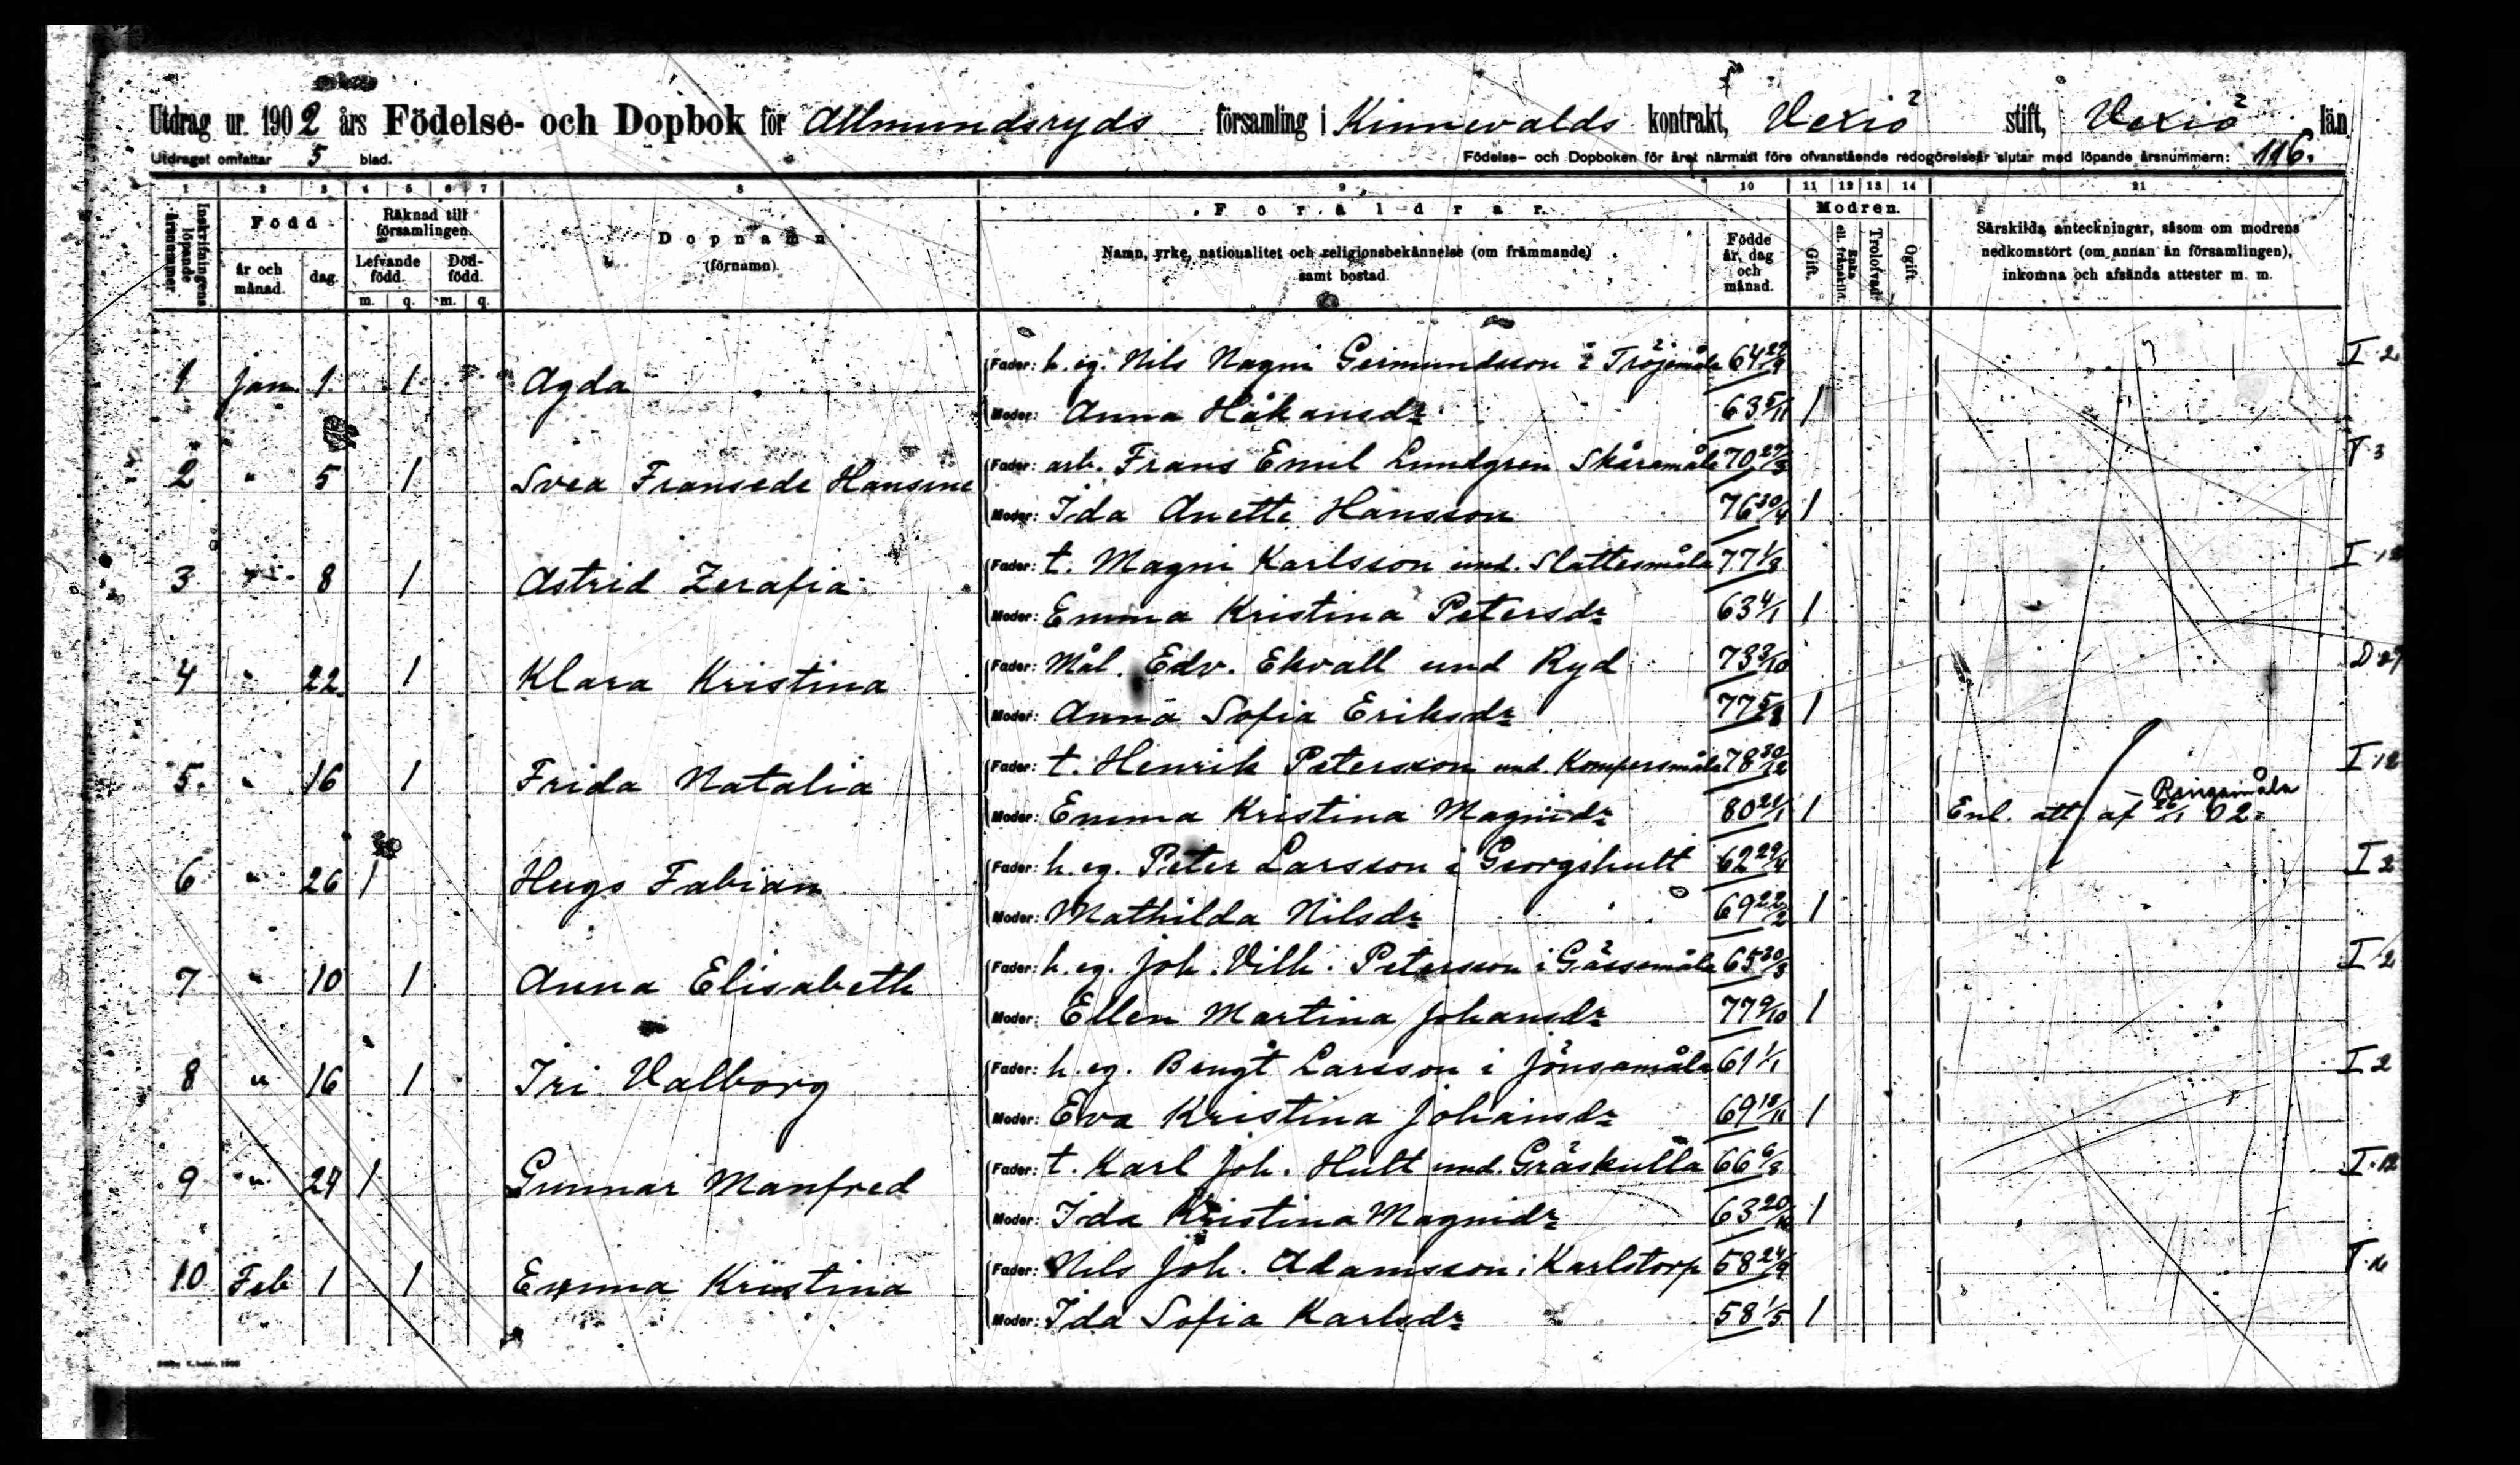 Utdrag ur 1902 års Födelse- och Dopbok för Allmundsryds församling i Kinnevalds kontrakt, Vexiö stift, Vexiö län
Utdraget omfattar 5 blad. Födelse- och Dopboken för året närmast före ofvanstående redogörelseår slutar med löpande årsnummern: 116.
1 2 3 4 5 6 7 8 9 10 11 12 13 14 21
Inskrifningens löpande årsnummer.
Född
år och månad.
dag.
Räknad till församlingen.
Lefvande född.
Död-född.
m. q. m. q.
Dopnamn
(förnamn).
Föräldrar.
Namn, yrke, nationalitet och religionsbekännelse (om främmande)
samt bostad.
Födde år, dag och månad.
Modren.
Gift.
Enka ell. frånskild.
Trolofvad.
Ogift.
Särskilda anteckningar, såsom om modrens
nedkomstort (om annan än församlingen),
inkomna och afsända attester m. m.
1 Jan. 1 1 Agda Fader: h. eg. Nils Magni Germundsson i Tröjemåla 64 I 2
Moder: Anna Håkansdr 63 5/11 1
2 " 5 1 Svea Fransede Hansine Fader: arb. Frans Emil Lundgren Skåramåla 70 27/3 T 3
Moder: Ida Anette Hansson 76 30/4 1
3 " 8 1 Astrid Zerafia Fader: t. Magni Karlsson und. Slattesmåla 77 1/8 I 12
Moder: Emma Kristina Petersdr 63 4/1 1
4 " 22 1 Klara Kristina Fader: Mål. Edv. Ekvall und Ryd 73 3/10 D 27
Moder: Anna Sofia Eriksdr 77 1
5. " 16 1 Frida Natalia Fader: t. Henrik Petersson und. Kompersmåla 78 30/12 I 12
Moder: Emma Kristina Magnidr 80 21/1 1 Enl. att. af Ringamåla 26/1 02.
6 " 26 1 Hugo Fabian Fader: h. eg. Peter Larsson i Georgshult 62 29/4 I 2
Moder: Mathilda Nilsdr 69 22/2 1
7 " 10 1 Anna Elisabeth Fader: h. eg. Joh. Vilh. Petersson i Gåssemåla 65 30/3 I 2
Moder: Ellen Martina Johansdr 77 9/10 1
8 " 16 1 Iri Valborg Fader: h. eg. Bengt Larsson i Jönsamåla 61 1/1 I 2
Moder: Eva Kristina Johansdr 69 18/11 1
9 " 29 1 Gunnar Manfred Fader: t. Karl Joh. Hult und. Gräskulla 66 6/8 I 12
Moder: Ida Kristina Magnidr 63 1
10 Feb 1 1 Emma Kristina Fader: Nils Joh. Adamsson i Karlstorp 58 24/9
Moder: Ida Sofia Karlsdr 58 1/5 1